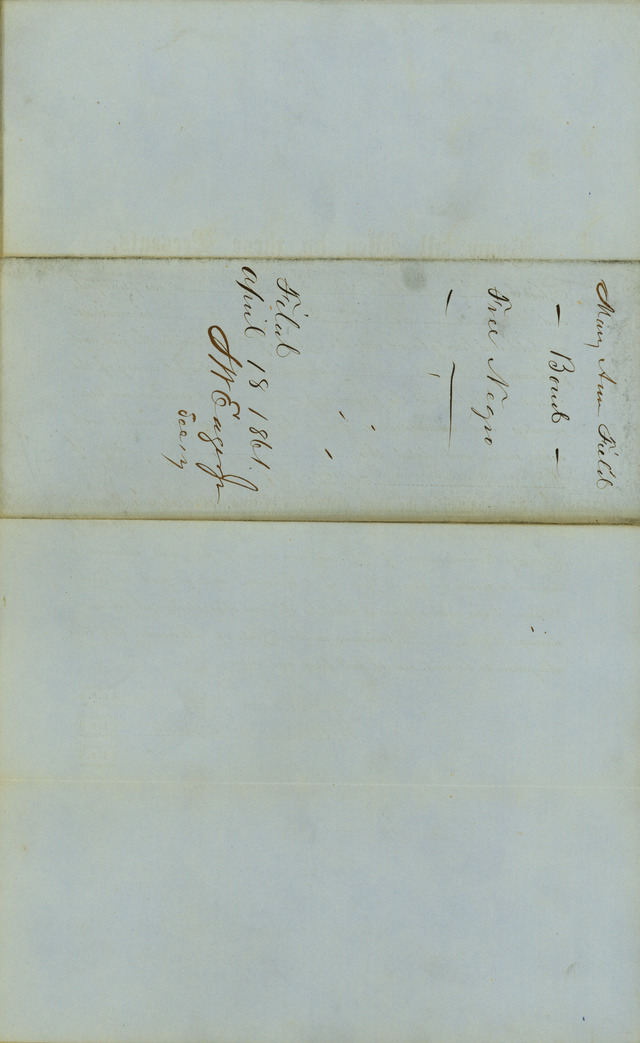 Mary Ann Field
— Bond —
Free Negro
Filed
April 18 1861.